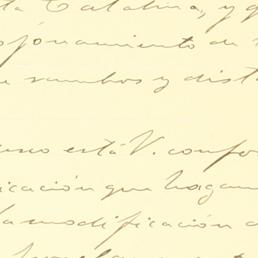 ta Catalina, y q
ojonamiento de
e rumbos y dista
uso está V. confor
icación que hagam
la modificación